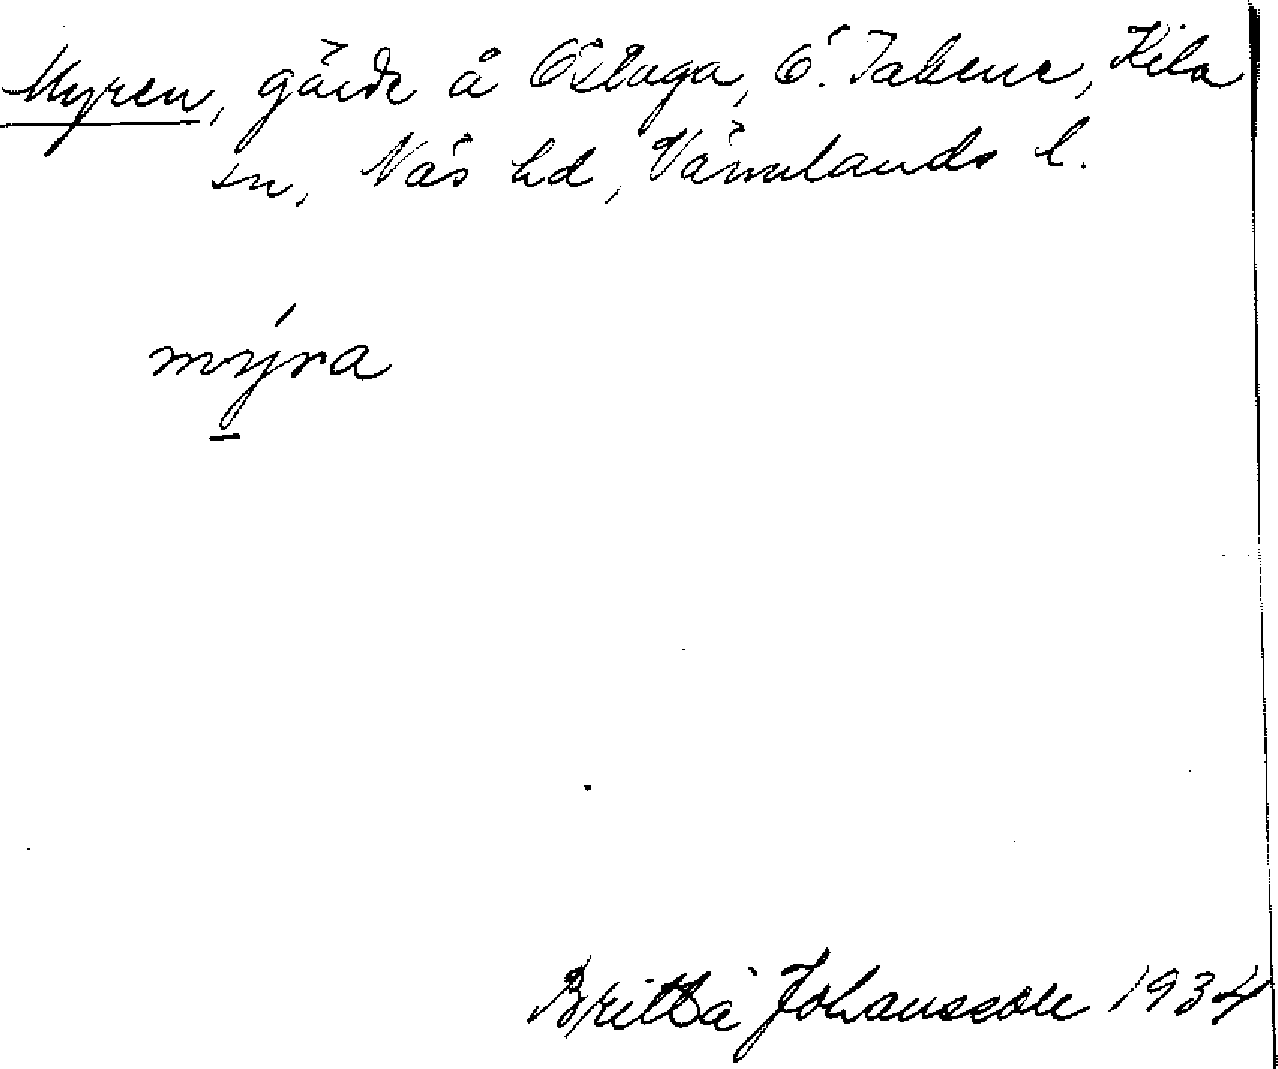 Myren, gärde å Östuga, Ö. Takene, Kila
sn, Näs hd, Värmlands l.
mýra
Britta Johansson 1934